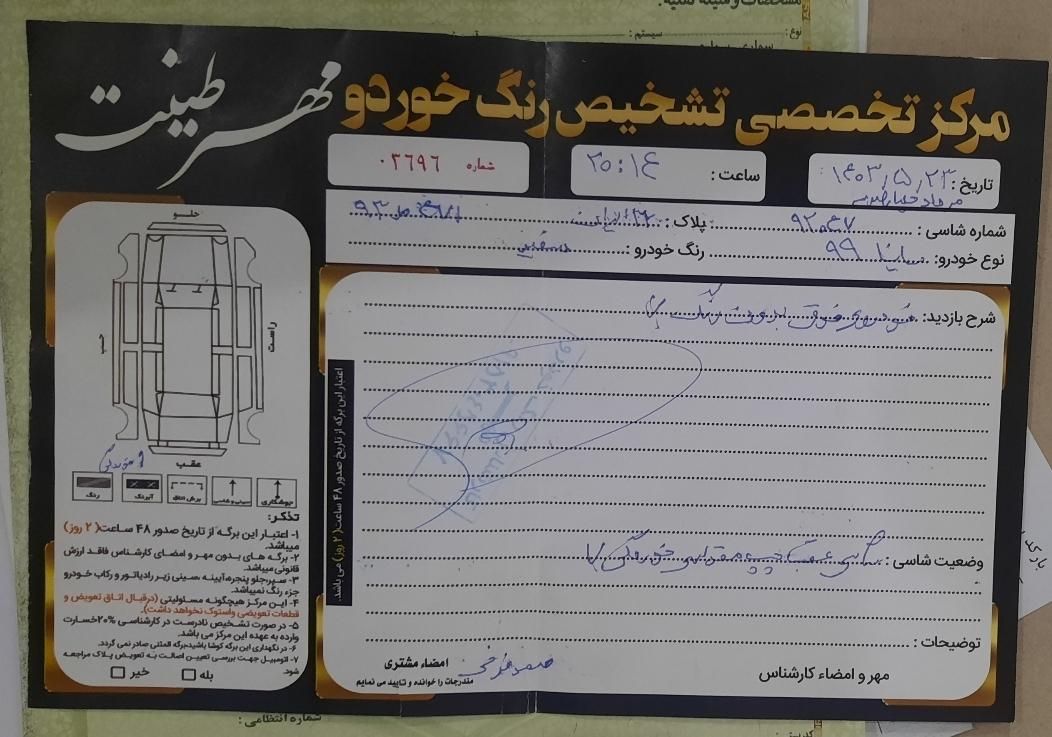 مشخصات وسیله نقلیه:
نوع:
سیستم:
سواری
مرکز تخصصی تشخیص رنگ خوردو
مهر طینت
تاریخ: ۱۴۰۳/۵/۲۳
ساعت: ۲۰:۱۴
شماره ۰۲۶۹۶
شماره شاسی:
پلاک:
نوع خودرو: ساینا ۹۹
رنگ خودرو:
شرح بازدید: خودروی فوق بدون رنگ
جلو
راست
چپ
عقب
۱ خوردگی
جوشکاری
سینی و شاسی
برش اتاق
آبرنگ
رنگ
تذکر:
۱- اعتبار این برگه از تاریخ صدور ۴۸ ساعت (۲ روز)
میباشد.
۲- برگه های بدون مهر و امضای کارشناس فاقد ارزش
قانونی میباشد.
۳- سپرجلو پنجره،آیینه،سینی زیر رادیاتور و رکاب خودرو
جزء رنگ نمیباشد.
۴- این مرکز هیچگونه مسئولیتی (درقبال اتاق تعویض و
قطعات تعویضی واستوک نخواهد داشت).
۵- در صورت تشخیص نادرست در کارشناسی ۲۰%خسارت
وارده به عهده این مرکز می باشد.
۶- در نگهداری این برگه کوشا باشید،برگه المثنی صادر نمی گردد.
۷- اتومبیل جهت بررسی تعیین اصالت به تعویض پلاک مراجعه
شود.
بله
خیر
اعتبار این برگه از تاریخ صدور ۴۸ ساعت (۲ روز) می باشد.
وضعیت شاسی:
توضیحات:
مهر و امضاء کارشناس
امضاء مشتری
مندرجات را خوانده و تایید می نمایم
شماره انتظامی: